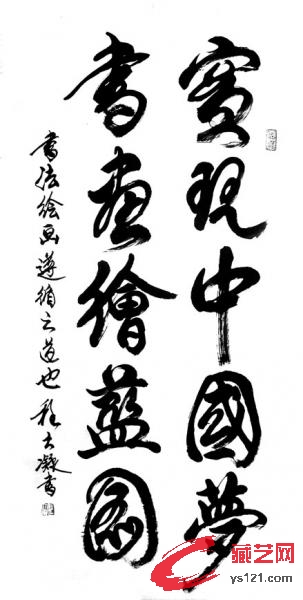 實現中國夢
書畫繪藍圖
書法绘画遵循之道也 程大凝書
藏艺网
ys121.com